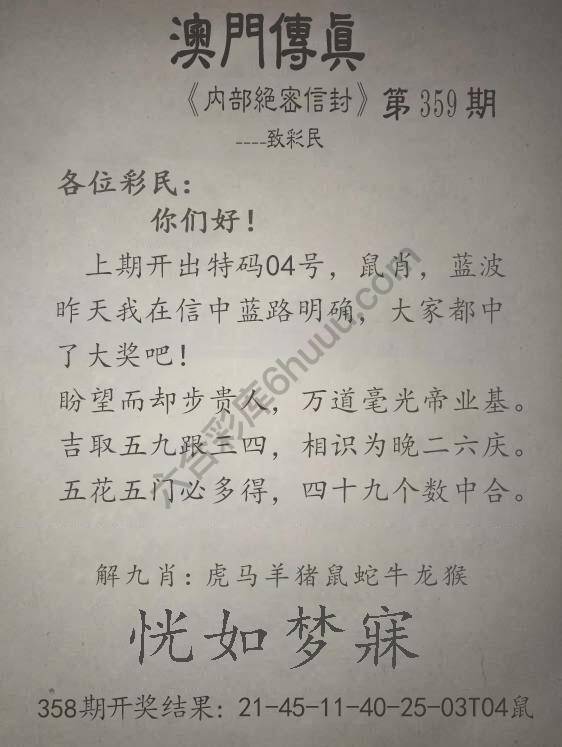 澳門傳眞
《内部絕密信封》第359期
----致彩民
各位彩民：
你们好！
上期开出特码04号，鼠肖，蓝波
昨天我在信中蓝路明确，大家都中
了大奖吧！
盼望而却步贵人，万道毫光帝业基。
吉取五九跟三四，相识为晚二六庆。
五花五门必多得，四十九个数中合。
解九肖：虎马羊猪鼠蛇牛龙猴
恍如梦寐
358期开奖结果：21-45-11-40-25-03T04鼠
六合彩库6huuu.com